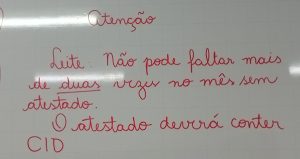 Atenção
Leite: Não pode faltar mais
de duas vezes no mês sem
atestado.
O atestado deverá conter
CID